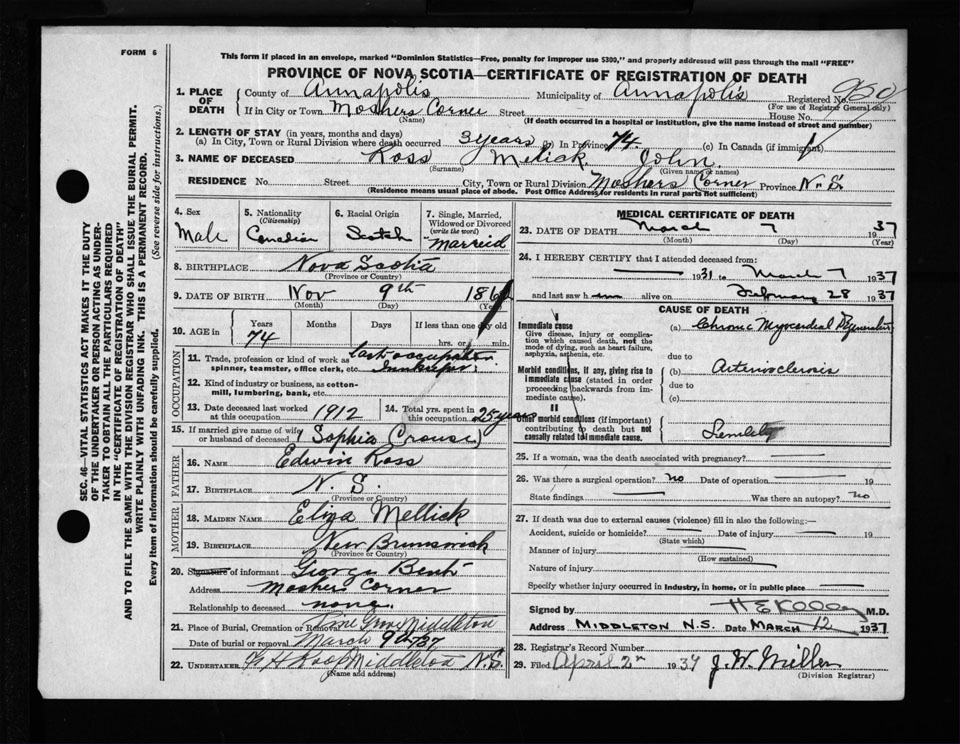 FORM 6
This form if placed in an envelope, marked "Dominion Statistics—Free, penalty for improper use $300," and properly addressed will pass through the mail "FREE"
PROVINCE OF NOVA SCOTIA—CERTIFICATE OF REGISTRATION OF DEATH
1. PLACE OF DEATH
County of Annapolis Municipality of Annapolis Registered No.
(For use of Registrar General only)
If in City or Town Moshers Corner Street House No.
(Name) (If death occurred in a hospital or institution, give the name instead of street and number)
2. LENGTH OF STAY (in years, months and days)
(a) In City, Town or Rural Division where death occurred 3 years (b) In Province 74 (c) In Canada (if immigrant)
3. NAME OF DECEASED Ross Melick John
(Surname) (Given name or names)
RESIDENCE No. Street City, Town or Rural Division Moshers Corner Province N.S.
(Residence means usual place of abode. Post Office Address for residents in rural parts not sufficient)
4. Sex Male
5. Nationality (Citizenship) Canadian
6. Racial Origin Scotch
7. Single, Married, Widowed or Divorced (write the word) Married
8. BIRTHPLACE Nova Scotia
(Province or Country)
9. DATE OF BIRTH Nov 9th
(Month) (Day) (Year)
10. AGE in Years Months Days If less than one day old
74 hrs. or min.
OCCUPATION
11. Trade, profession or kind of work as spinner, teamster, office clerk, etc. last occupation Innkeeper
12. Kind of industry or business, as cotton-mill, lumbering, bank, etc.
13. Date deceased last worked at this occupation 1912
14. Total yrs. spent in this occupation 25 years
15. If married give name of wife or husband of deceased (Sophia Crouse)
FATHER
16. Name Edwin Ross
17. Birthplace N.S.
(Province or Country)
MOTHER
18. MAIDEN NAME Eliza Mellick
19. BIRTHPLACE New Brunswick
(Province or Country)
20. Signature of informant George Bent
Address Moshers Corner
Relationship to deceased none
21. Place of Burial, Cremation or Removal Pine Grove Middleton
Date of burial or removal March 9th 37
22. UNDERTAKER Middleton N.S.
(Name and address)
MEDICAL CERTIFICATE OF DEATH
23. DATE OF DEATH March 7 1937
(Month) (Day) (Year)
24. I HEREBY CERTIFY that I attended deceased from:
1931 to March 7 1937
and last saw him alive on February 28 1937
CAUSE OF DEATH
Immediate cause
Give disease, injury or complication which caused death, not the mode of dying, such as heart failure, asphyxia, asthenia, etc.
(a) Chronic Myocardial Degeneration
due to
Morbid conditions, if any, giving rise to immediate cause (stated in order proceeding backwards from immediate cause).
(b) Arteriosclerosis
due to
(c)
II
Other morbid conditions (if important) contributing to death but not causally related to immediate cause.
Senility
25. If a woman, was the death associated with pregnancy?
26. Was there a surgical operation? no Date of operation 19
State findings Was there an autopsy? no
27. If death was due to external causes (violence) fill in also the following:—
Accident, suicide or homicide? Date of injury 19
(State which)
Manner of injury
(How sustained)
Nature of injury
Specify whether injury occurred in Industry, in home, or in public place
Signed by M.D.
Address MIDDLETON N.S. Date MARCH 12 1937
28. Registrar's Record Number
29. Filed April 2 1937 J. W. Miller
(Division Registrar)
SEC. 46—VITAL STATISTICS ACT MAKES IT THE DUTY OF THE UNDERTAKER OR PERSON ACTING AS UNDERTAKER TO OBTAIN ALL THE PARTICULARS REQUIRED IN THE "CERTIFICATE OF REGISTRATION OF DEATH"
AND TO FILE THE SAME WITH THE DIVISION REGISTRAR WHO SHALL ISSUE THE BURIAL PERMIT.
WRITE PLAINLY WITH UNFADING INK. THIS IS A PERMANENT RECORD.
Every item of information should be carefully supplied. (See reverse side for instructions.)